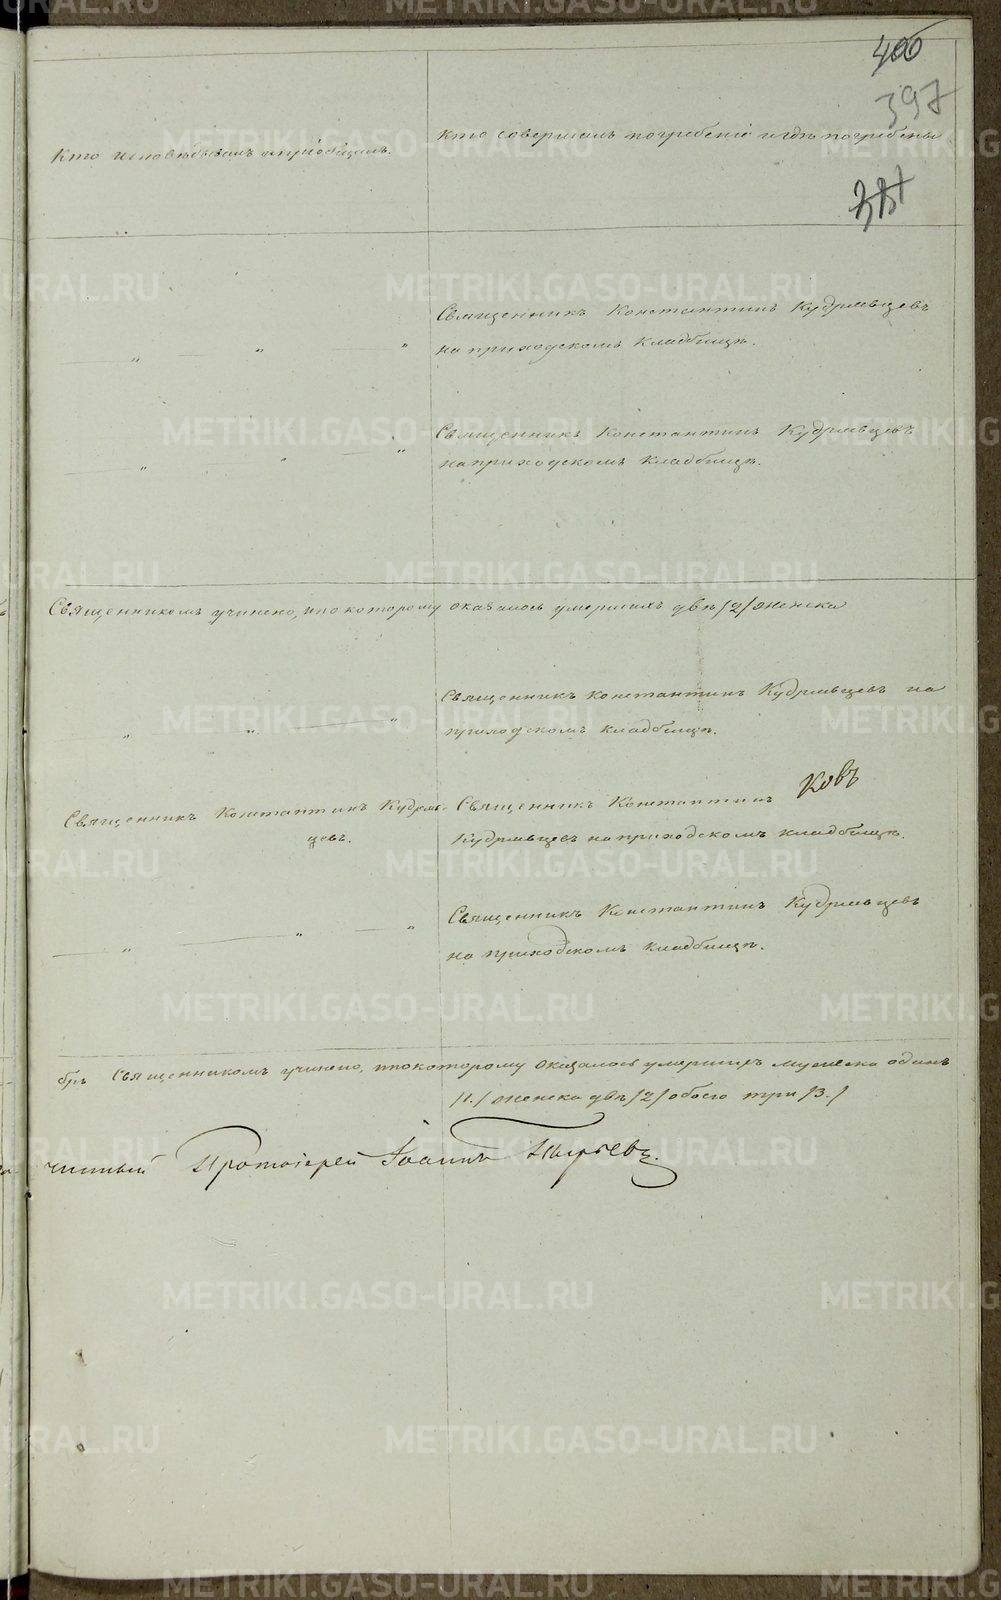 400
397
Кто исповѣдывалъ и пріобщалъ.
Кто совершалъ погребеніе и гдѣ погребены
Священникъ Константинъ Кудрявцевъ
на приходскомъ кладбищѣ.
Священникъ Константинъ Кудрявцевъ
на приходскомъ кладбищѣ.
Священникомъ учинено, и по которому оказалось умершихъ двѣ /2/ женска
Священникъ Константинъ Кудрявцевъ на
приходскомъ кладбищѣ.
Священникъ Константинъ Кудряв-
цевъ.
Священникъ Константинъ
Ковъ
Кудрявцевъ на приходскомъ кладбищѣ.
Священникъ Константинъ Кудрявцевъ
на приходскомъ кладбищѣ.
брѣ Священникомъ учинено, и по которому оказалось умершихъ мужеска одинъ
/1./ женска двѣ /2/ обоего три /3./
чинный Протоіерей Іоаннъ
METRIKI.GASO-URAL.RU